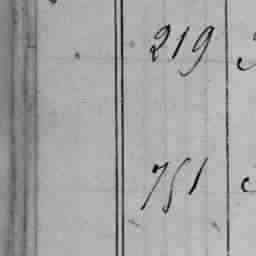 219
751